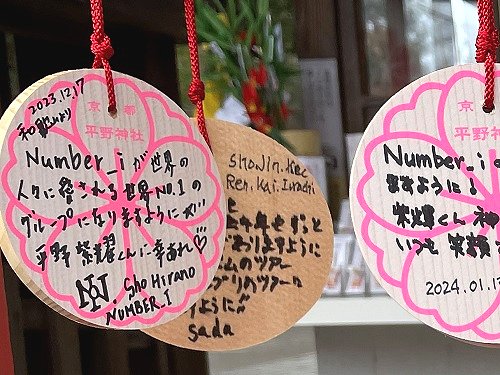 2023.12.17
和歌山より
京都
平野神社
Number_iが世界の
人々に愛される世界NO.1の
グループになりますように
平野 紫耀くんに幸あれ♡
Sho Hirano
NUMBER_I
Sho.Jin.
Ren.Kai.
ずっと
ますように
ムのツアー
ように!!
sada
京
平野神社
Number_i
ますように!
紫耀くん
いつも 笑顔
2024.01.1